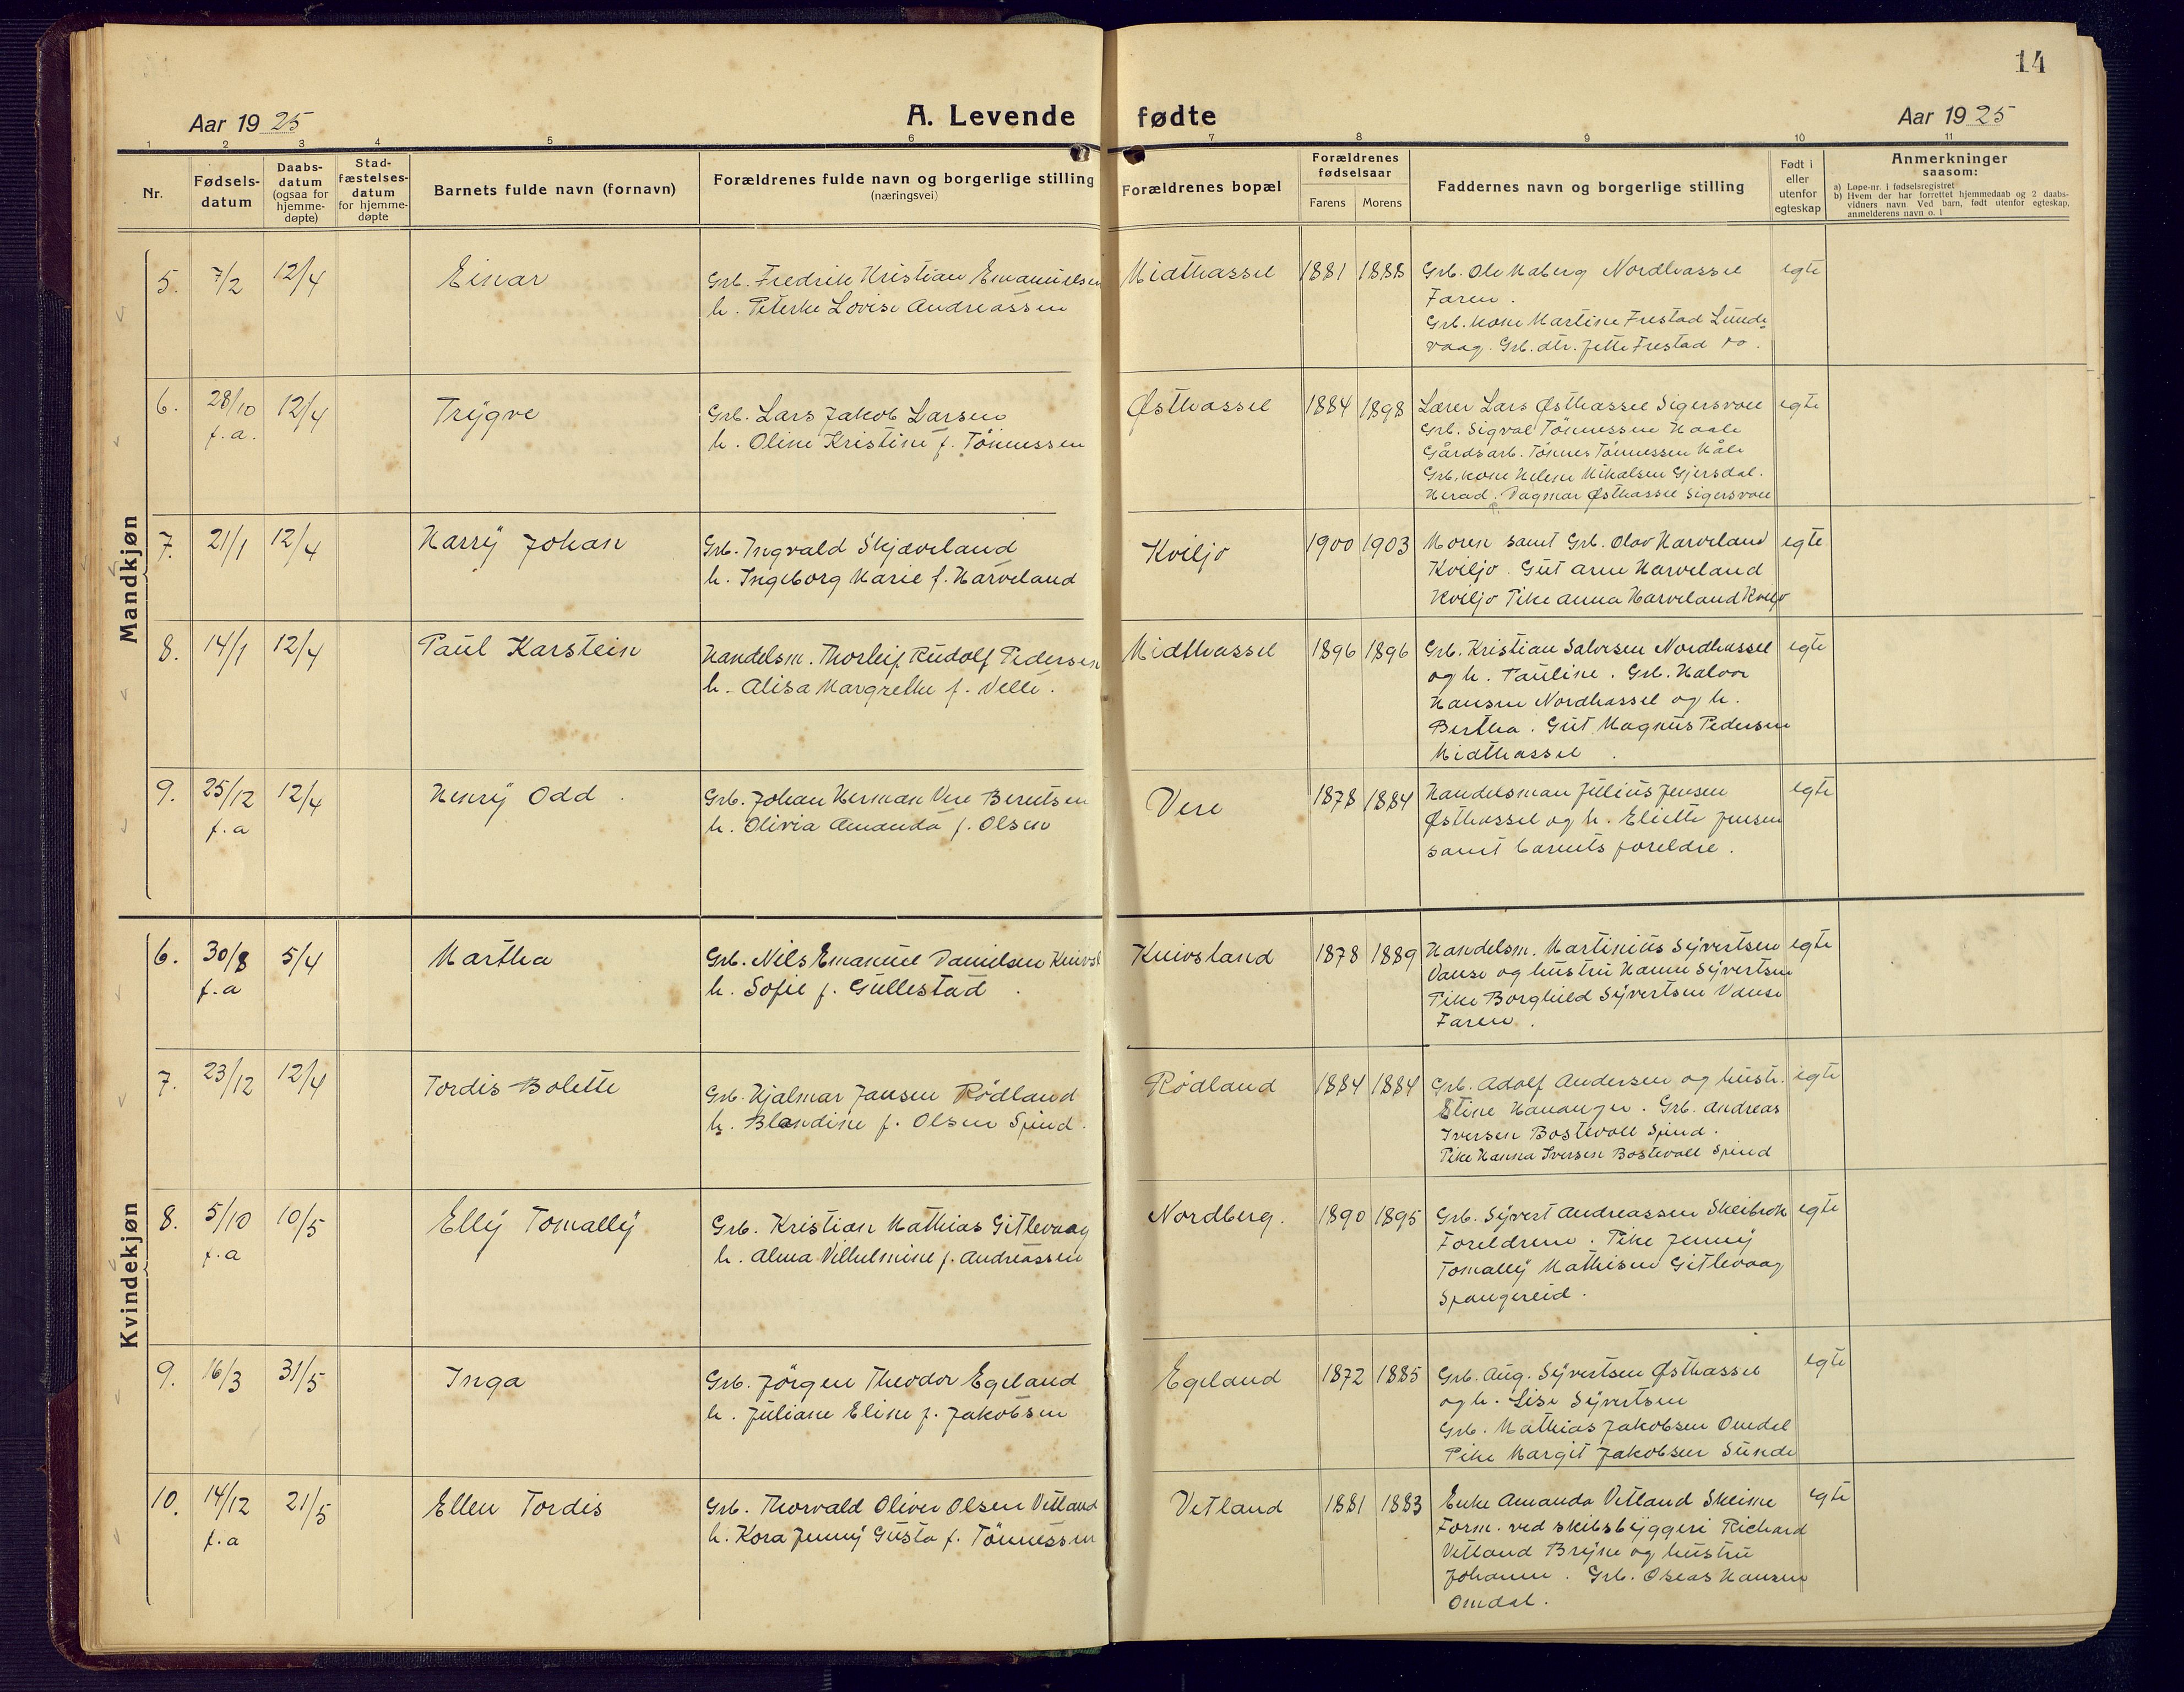 14
Aar 1925
A. Levende fødte
Aar 1925
1 2 3 4 5 6 7 8 9 10 11
Nr.
Fødsels-
datum
Daabs-
datum
(ogsaa for
hjemme-
døpte)
Stad-
fæstelses-
datum
for hjemme-
døpte
Barnets fulde navn (fornavn)
Forældrenes fulde navn og borgerlige stilling
(næringsvei)
Forældrenes bopæl
Forældrenes
fødselsaar
Farens Morens
Faddernes navn og borgerlige stilling
Født i
eller
utenfor
egteskap
Anmerkninger
saasom:
a) Løpe-nr. i fødselsregistret
b) Hvem der har forrettet hjemmedaab og 2 daabs-
vidners navn. Ved barn, født utenfor egteskap,
anmelderens navn o. l
Mandkjøn
5. 7/2 12/4 Einar
Grb. Fredrik Kristian Emanuelsen
h. Peterke Lovise Andreassen
Midthassel 1881 1888
Grb. Ole Haberg Nordhassel
Faren.
Grb. kone Martine Frestad Lunde-
vaag. Grb. dtr. Jette Frestad do.
egte
6. 28/10 f.a. 12/4 Trygve
Grb. Lars Jakob Larsen
h. Oline Kristine f. Tönnessen
Østhassel 1884 1898
Lærer Lars Østhassel Sigersvoll
Grb. Sigval Tönnessen Haale
Gårdsarb. Tönnes Tönnessen Håle
Grb. kone Helene Mikalsen Gjersdal.
Herad. Dagmar Østhassel Sigersvoll
egte
7. 21/1 12/4 Harry Johan
Grb. Ingvald Skjæveland
h. Ingeborg Marie f. Harveland
Kviljo 1900 1903
Moren samt Grb. Olav Harveland
Kviljo. Gut Arne Harveland
Kviljo Pike Anna Harveland Kviljo
egte
8. 14/1 12/4 Paul Karstein
Handelsm. Thorleif Rudolf Pedersen
h. Alisa Margrethe f. Velle.
Midthassel 1896 1896
Grb. Kristian Salvesen Nordhassel
og h. Pauline. Grb. Halvor
Hansen Nordhassel og h.
Bertha. Gut Magnus Pedersen
Midthassel.
egte
9. 25/12 f.a 12/4 Henry Odd.
Grb. Johan Herman Vere Berntsen
h. Olivia Amanda f. Olsen
Vere 1878 1884
Handelsman Julius Jensen
Østhassel og h. Eliette Jensen
samt barnets foreldre.
egte
Kvindekjøn
6. 30/8 f.a 5/4 Martha
Grb. Nils Emanuel Danielsen Knivsl
h. Sofie f. Gullestad.
Knivsland 1878 1889
Handelsm. Martinius Syvertsen
Vanse og hustru Hanne Syvertsen
Pike Borghild Syvertsen Vanse
Faren.
egte
7. 23/12 12/4 Tordis Bolette
Grb. Hjalmar Jansen Rödland
h. Blandine f. Olsen Spind.
Rödland 1884 1884
Grb. Adolf Andersen og hustr.
Stine Hananger. Grb. Andreas
Iversen Bostevoll Spind.
Pike Hanna Iversen Bostevoll Spind
egte
8. 5/10 f.a 10/5 Elly Tomally
Grb. Kristian Mathias Gitlevaag
h. Alma Vilhelmine f. Andreassen
Nordberg. 1890 1895
Grb. Syvert Andreassen Skeibrok
Foreldrene. Pike Jenny
Tomally Mathisen Gitlevaag
Spangereid.
egte
9. 16/3 31/5 Inga
Grb. Jörgen Theodor Egeland
h. Juliane Eline f. Jakobsen
Egeland 1872 1885
Grb. Aug. Syvertsen Østhassel
og h. Lise Syvertsen
Grb. Mathias Jakobsen Omdal
Pike Margit Jakobsen Sunde
egte
10. 14/12 f.a 21/5 Ellen Tordis
Grb. Thorvald Oliver Olsen Vetland
h. Kora Jenny Gusta f. Tönnessen
Vetland 1881 1883
Enke Amanda Vetland Skeime
Form. ved skibsbyggeri Richard
Vetland Bryne og hustru
Johanne. Grb. Oseas Hansen
Omdal.
egte